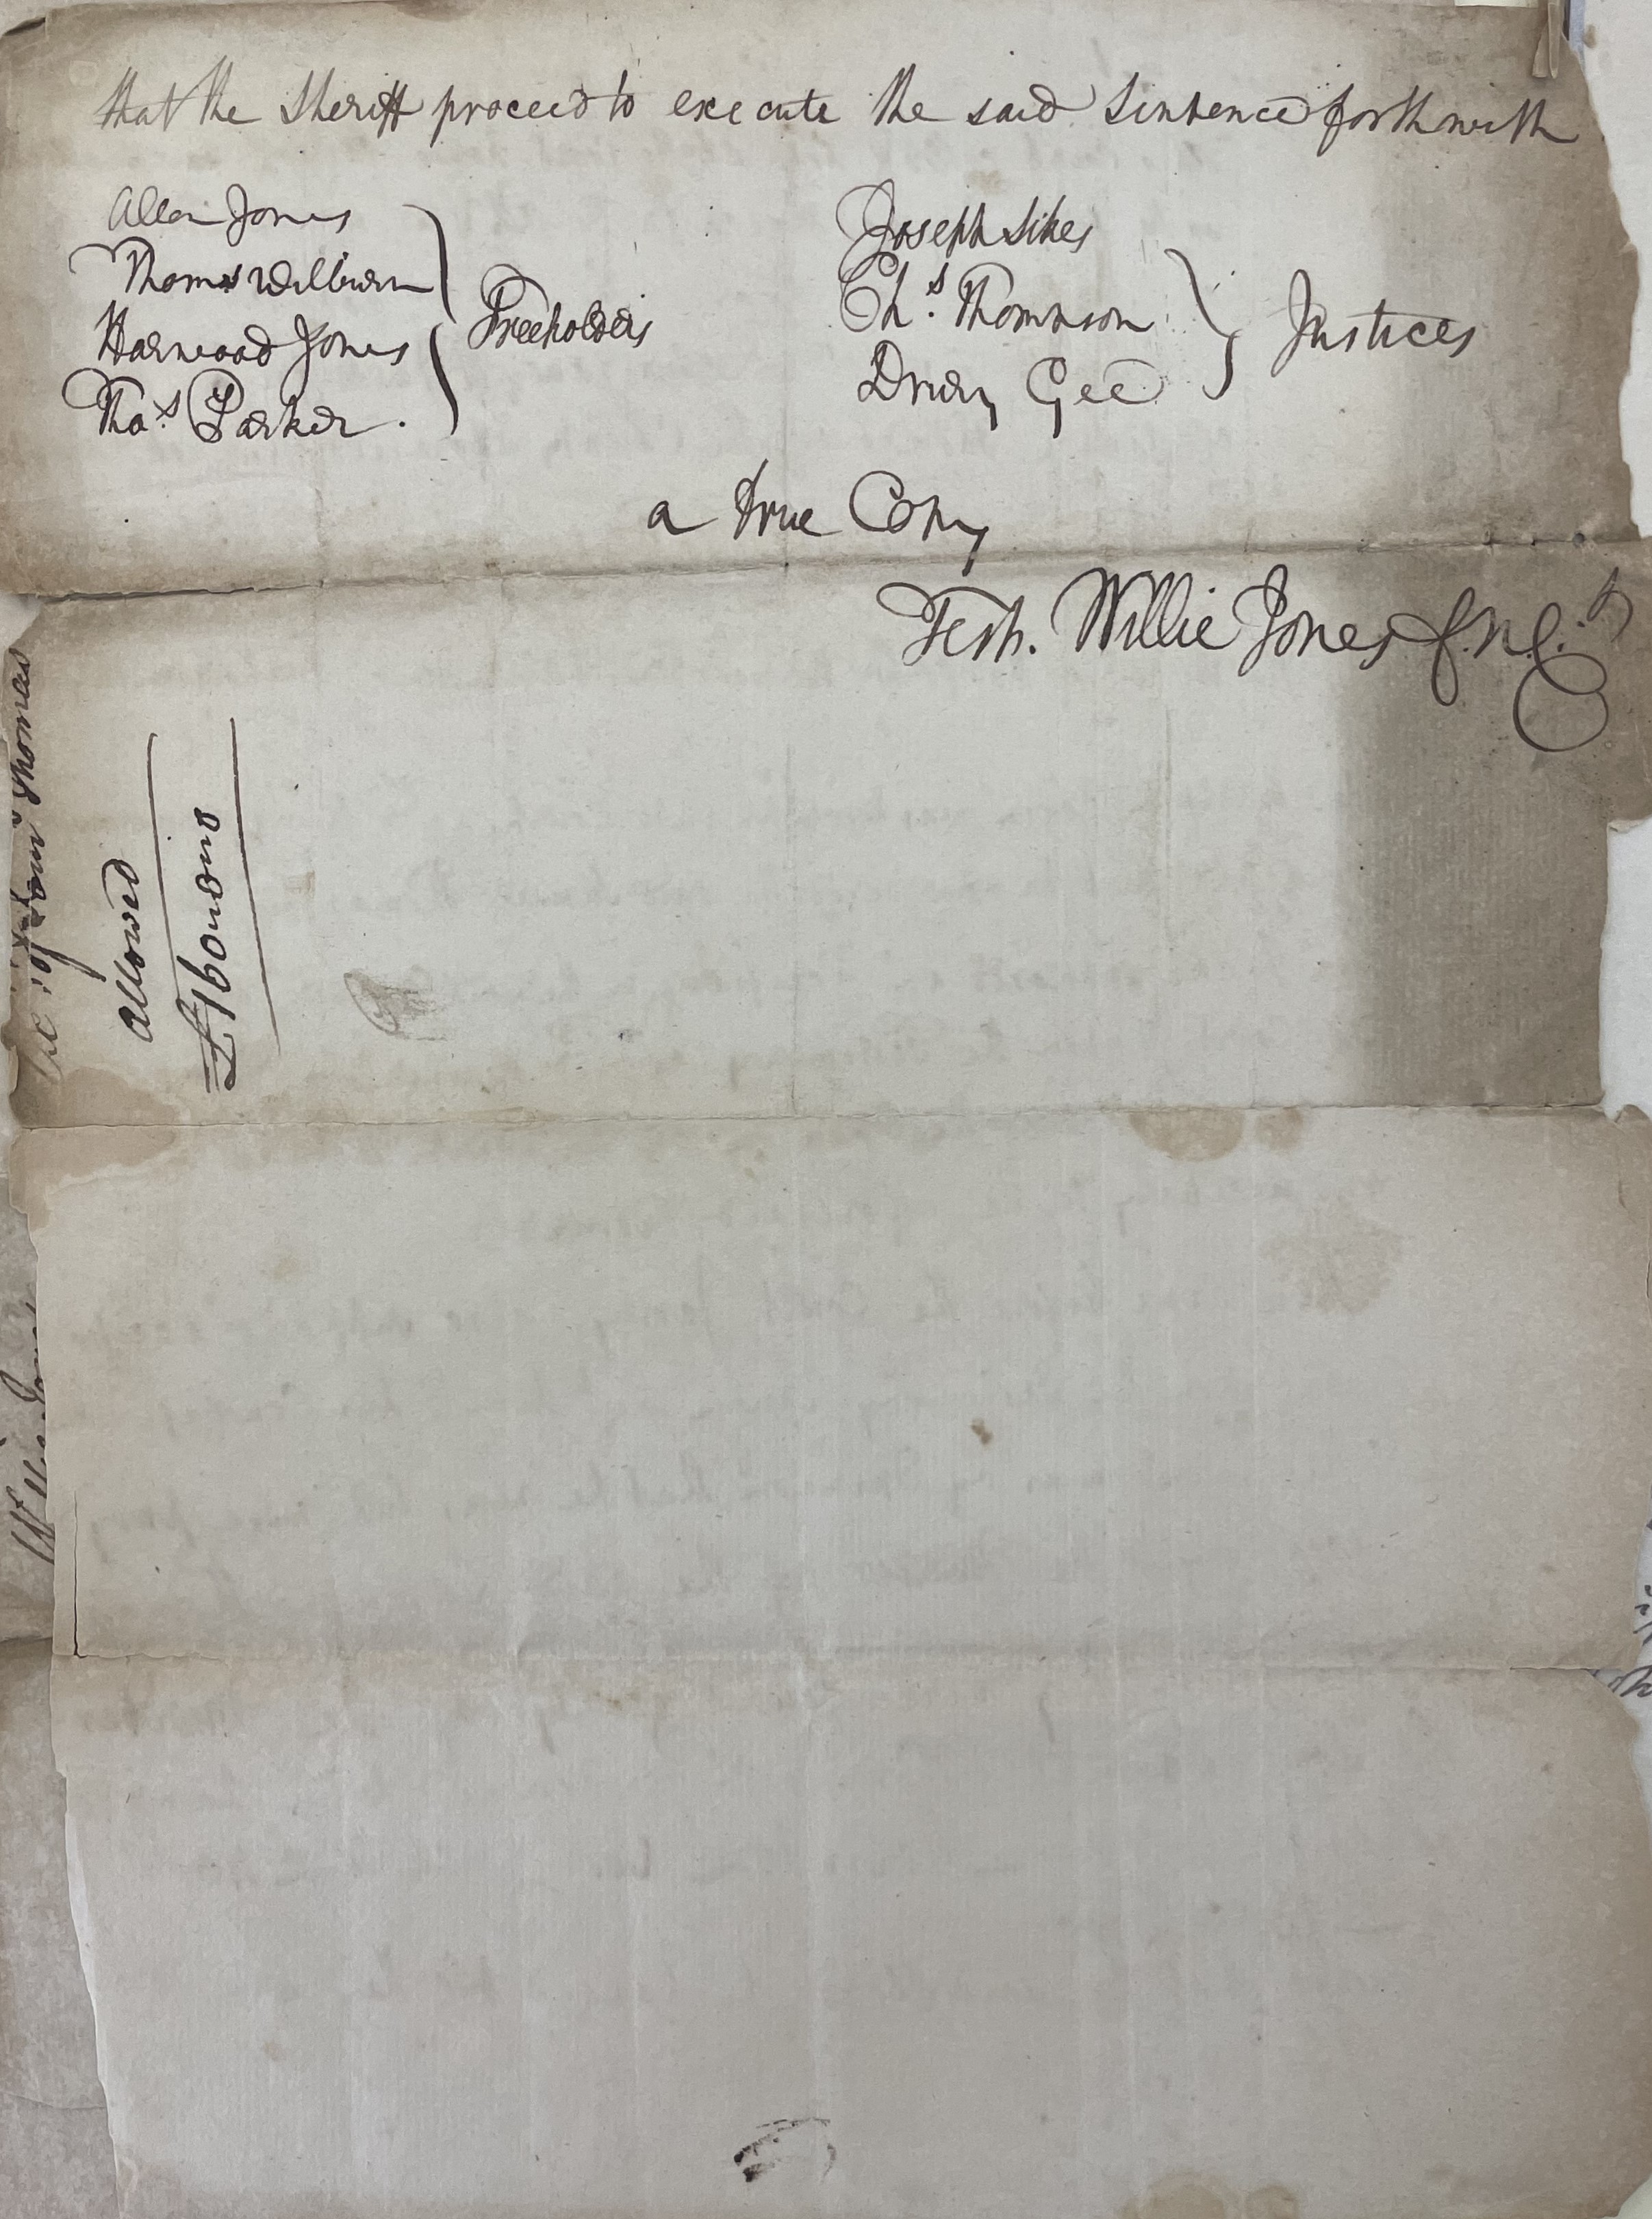 that the Sheriff proceed to execute the said Sentence forthwith
Allen Jones
Thomas Wilburn
Harwood Jones
Thos. Parker.
Freeholders
Joseph Sikes
Chs. Thomson
Drury Gee
Justices
a true Copy
Test. Willie Jones
of John Thomas
allowed
£160